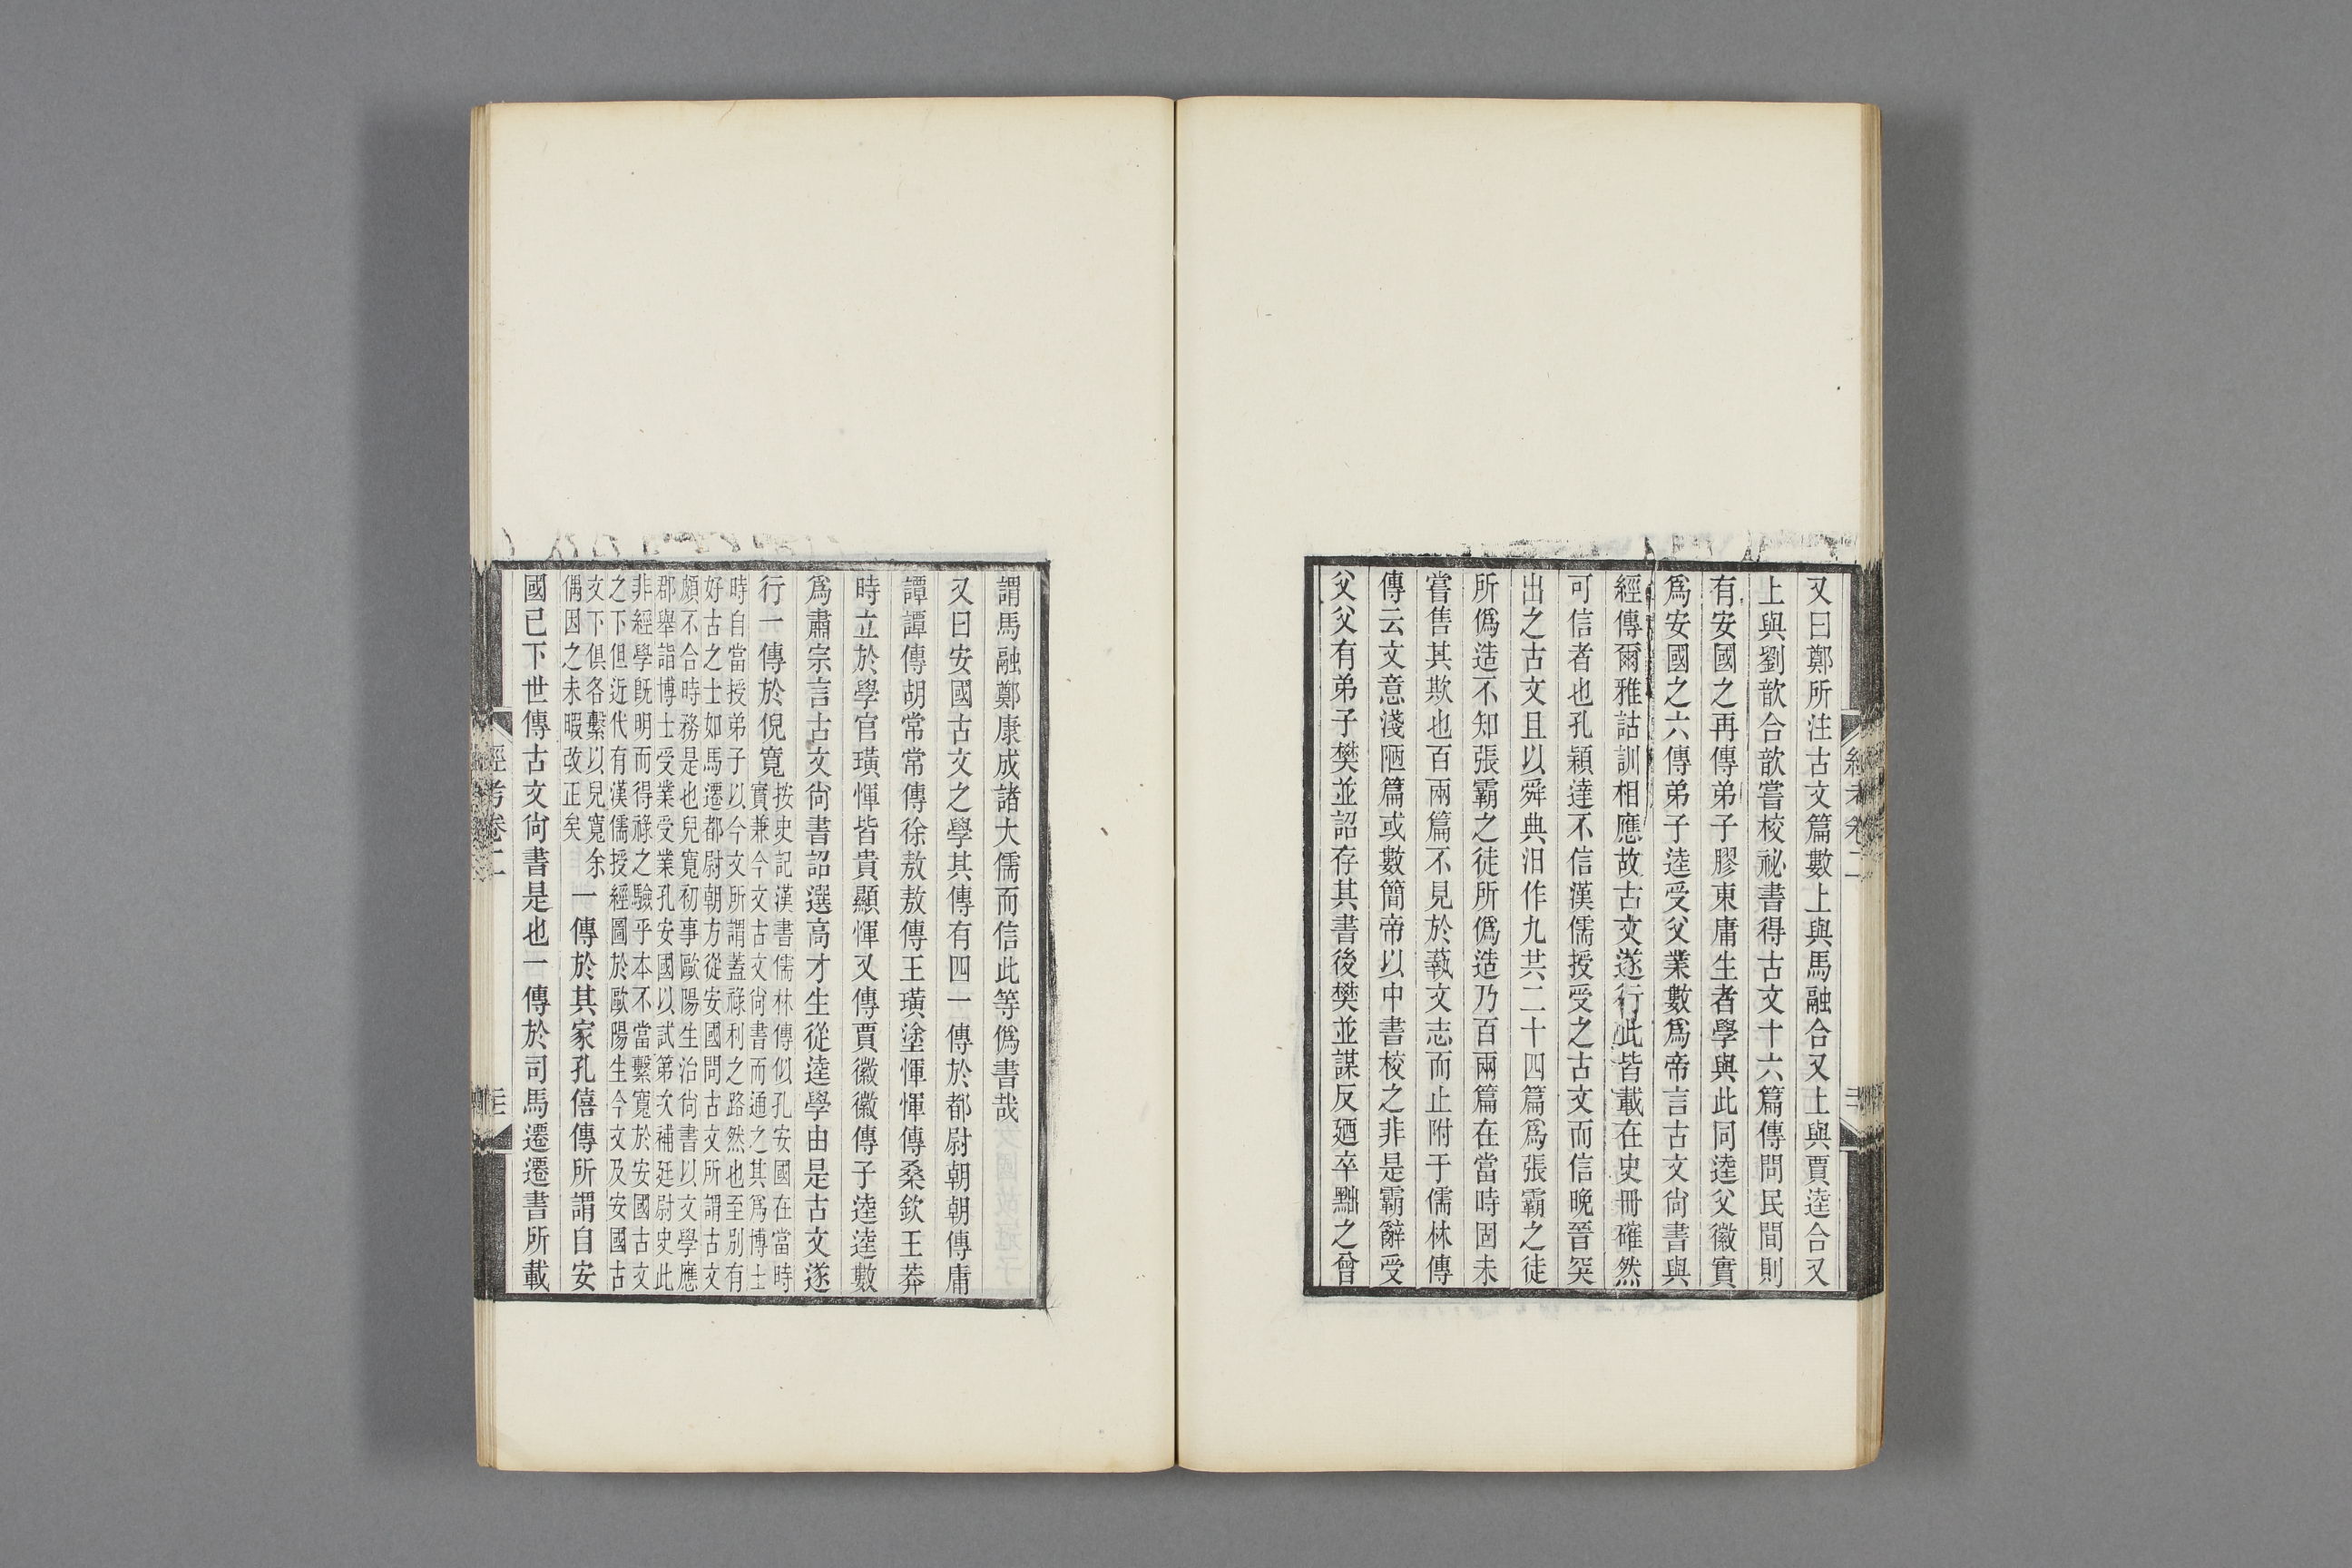 又曰鄭所注古文篇數上與馬融合又上與賈逵合又
上與劉歆合歆嘗校祕書得古文十六篇傳問民間則
有安國之再傳弟子膠東庸生者學與此同逵父徽實
爲安國之六傳弟子逵受父業數爲帝言古文尚書與
經傳爾雅詁訓相應故古文遂行此皆載在史冊確然
可信者也孔穎達不信漢儒授受之古文而信晚晉突
出之古文且以舜典汨作九共二十四篇爲張霸之徒
所僞造不知張霸之徒所僞造乃百兩篇在當時固未
嘗售其欺也百兩篇不見於藝文志而止附于儒林傳
傳云文意淺陋篇或數簡帝以中書校之非是霸辭受
父父有弟子樊並詔存其書後樊並謀反廼卒黜之曾
謂馬融鄭康成諸大儒而信此等僞書哉
又曰安國古文之學其傳有四一傳於都尉朝朝傳庸
譚譚傳胡常常傳徐敖敖傳王璜塗惲惲傳桑欽王莽
時立於學官璜惲皆貴顯惲又傳賈徽徽傳子逵逵數
爲肅宗言古文尚書詔選高才生從逵學由是古文遂
行一傳於倪寬
按史記漢書儒林傳似孔安國在當時
實兼今文古文尚書而通之其爲博士
時自當授弟子以今文所謂蓋祿利之路然也至別有
好古之士如馬遷都尉朝方從安國問古文所謂古文
頗不合時務是也兒寬初事歐陽生治尚書以文學應
郡舉詣博士受業受業孔安國以試第次補廷尉史此
非經學既明而得祿之驗乎本不當繫寬於安國古文
之下但近代有漢儒授經圖於歐陽生今文及安國古
文下俱各繫以兒寬余
偶因之未暇改正矣
一傳於其家孔僖傳所謂自安
國已下世傳古文尚書是也一傳於司馬遷遷書所載
經考卷二